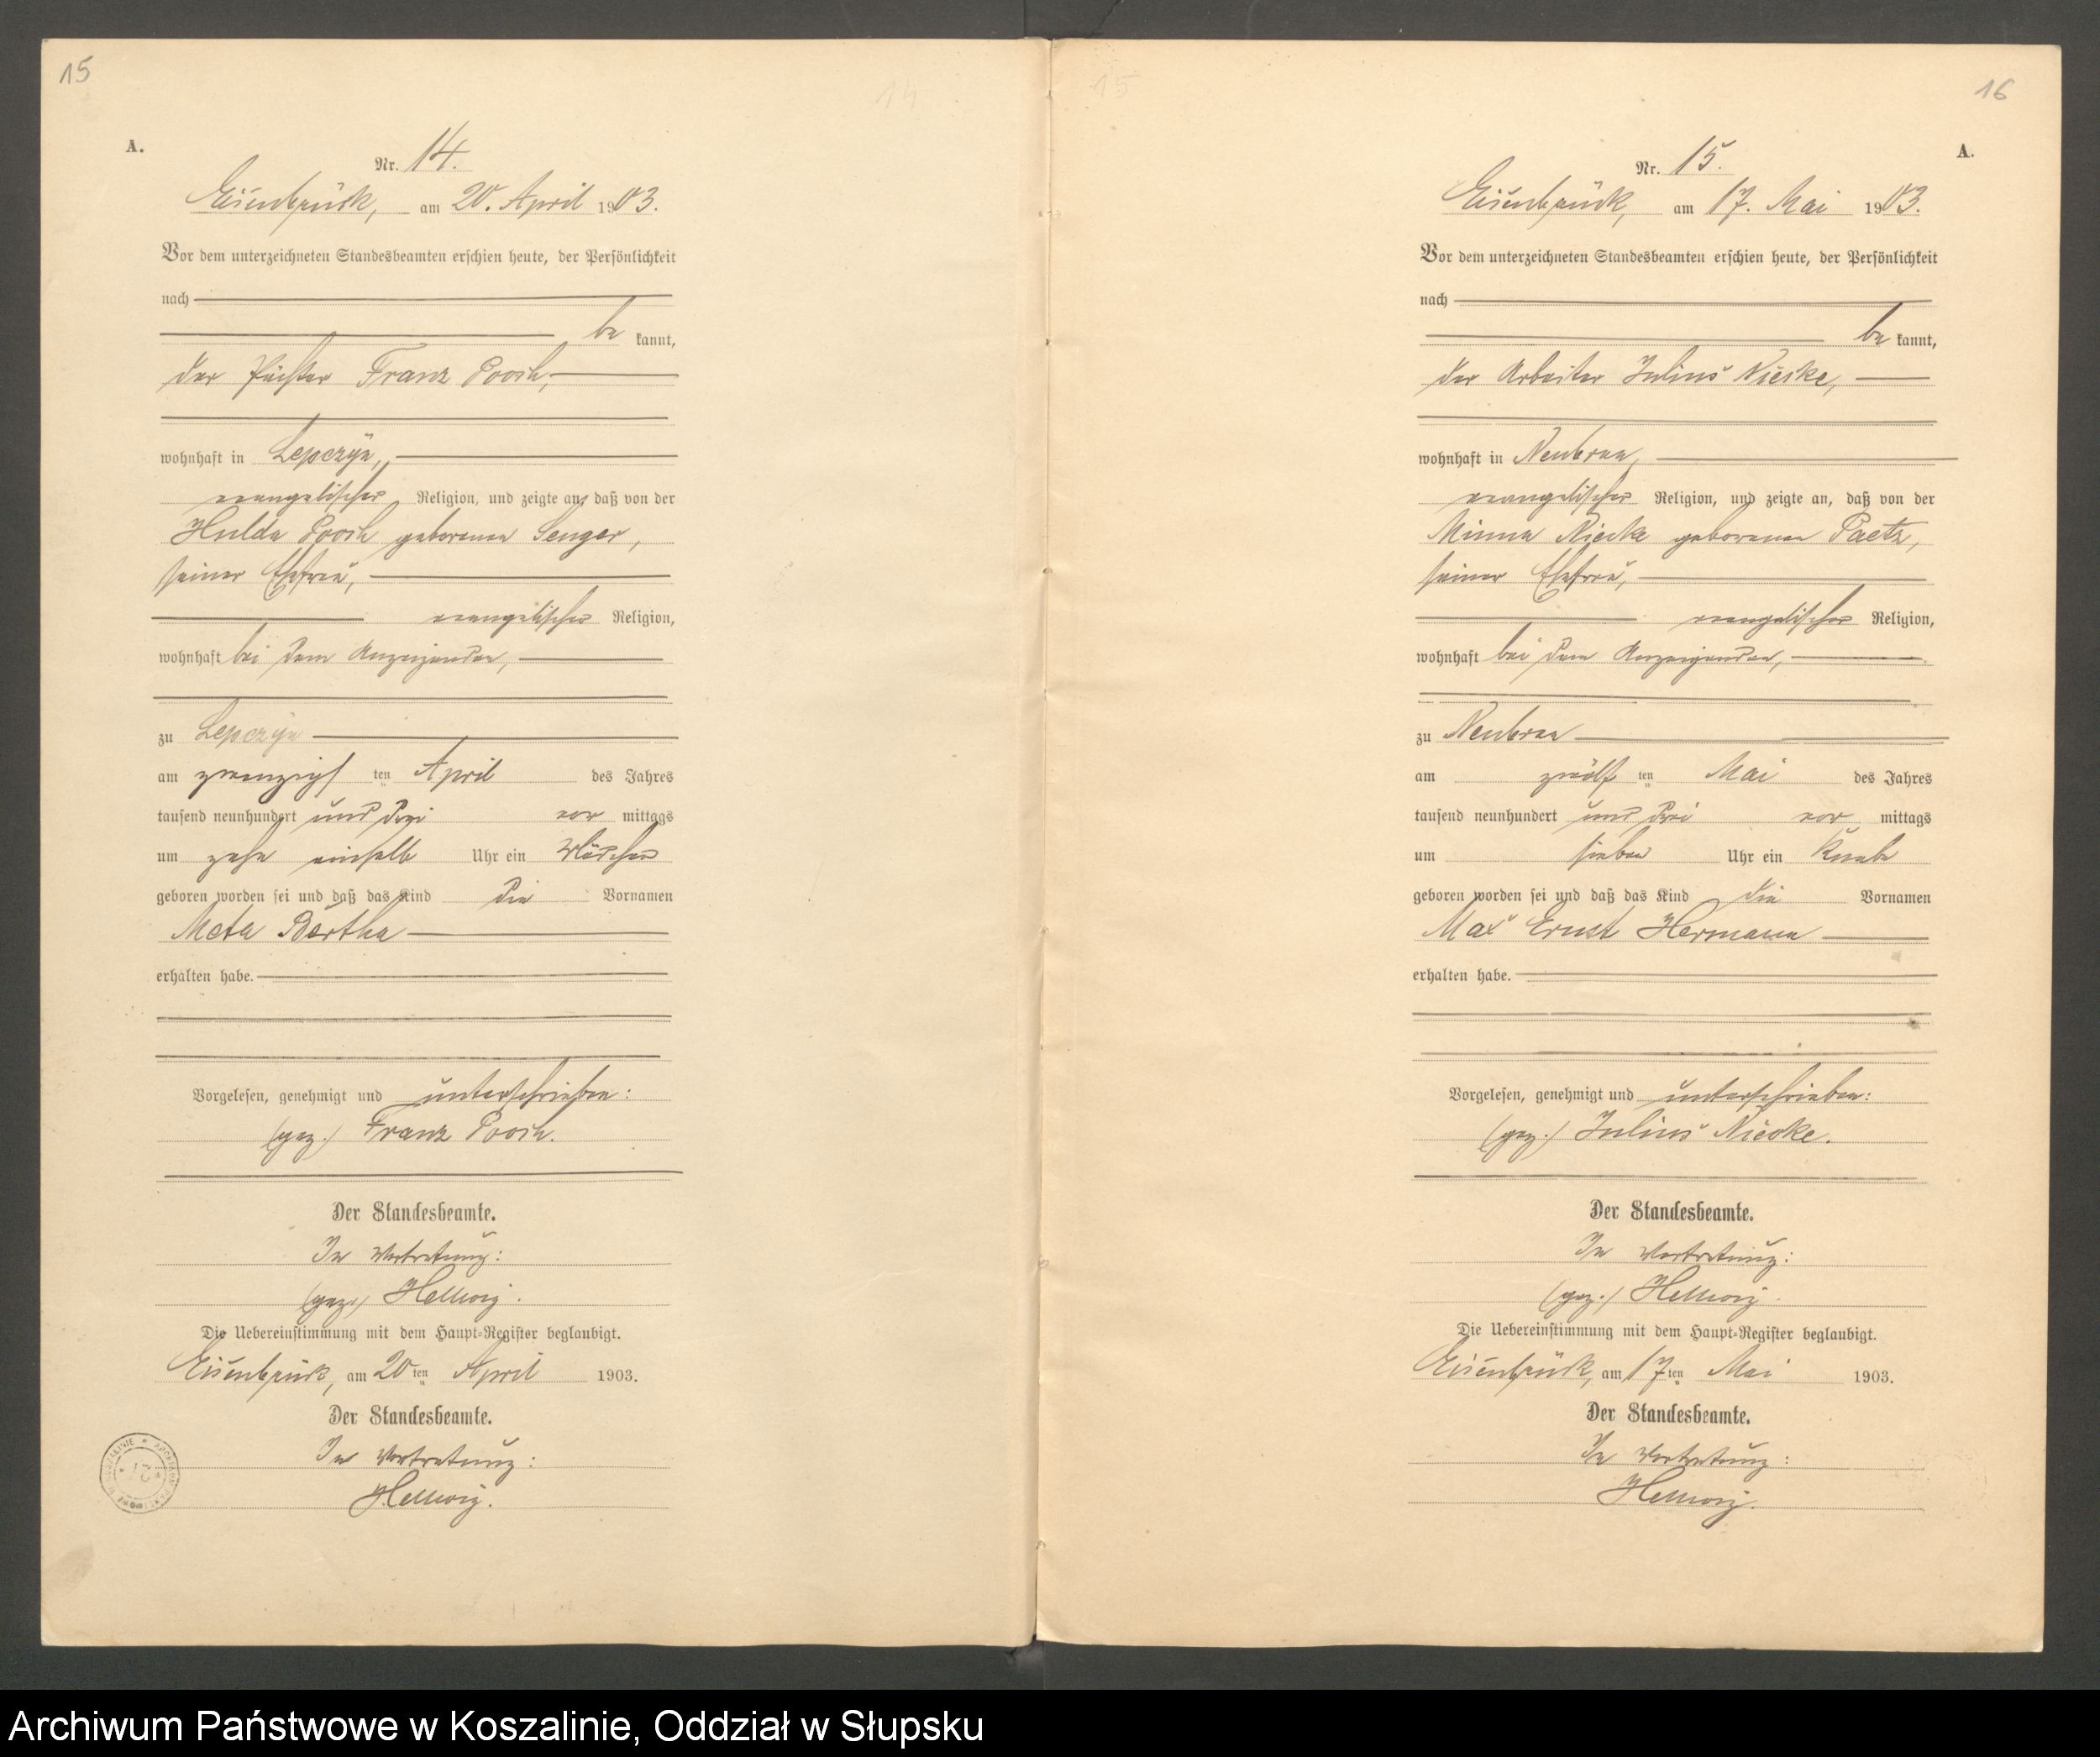 15
A.
Nr. 14.
Eisenbrück, am 20. April 1903.
Vor dem unterzeichneten Standesbeamten erschien heute, der Persönlichkeit
nach
be kannt,
der Pächter Franz Poosh,
wohnhaft in Lepczyn,
evangelischer Religion, und zeigte an, daß von der
Hulda Poosh geborenen Senger,
seiner Ehefrau,
evangelischer Religion,
wohnhaft bei dem Anzeigenden,
zu Lepczyn
am zwanzigsten April des Jahres
tausend neunhundert und drei vor mittags
um zehn einhalb Uhr ein Mädchen
geboren worden sei und daß das Kind die Vornamen
Meta Bertha
erhalten habe.
Vorgelesen, genehmigt und unterschrieben:
(gez.) Franz Poosh.
Der Standesbeamte.
In Vertretung:
(gez.) Hellwig.
Die Uebereinstimmung mit dem Haupt-Register beglaubigt.
Eisenbrück, am 20ten April 1903.
Der Standesbeamte.
In Vertretung:
Hellwig.
14
15
16
A.
Nr. 15.
Eisenbrück, am 17. Mai 1903.
Vor dem unterzeichneten Standesbeamten erschien heute, der Persönlichkeit
nach
be kannt,
der Arbeiter Julius Nieske,
wohnhaft in Neubraa,
evangelischer Religion, und zeigte an, daß von der
Minna Nieske geborenen Paetz,
seiner Ehefrau,
evangelischer Religion,
wohnhaft bei dem Anzeigenden,
zu Neubraa
am zwölften Mai des Jahres
tausend neunhundert und drei vor mittags
um sieben Uhr ein Knabe
geboren worden sei und daß das Kind die Vornamen
Max Ernst Hermann
erhalten habe.
Vorgelesen, genehmigt und unterschrieben:
(gez.) Julius Nieske.
Der Standesbeamte.
In Vertretung:
(gez.) Hellwig.
Die Uebereinstimmung mit dem Haupt-Register beglaubigt.
Eisenbrück, am 17ten Mai 1903.
Der Standesbeamte.
In Vertretung:
Hellwig.
Archiwum Państwowe w Koszalinie, Oddział w Słupsku